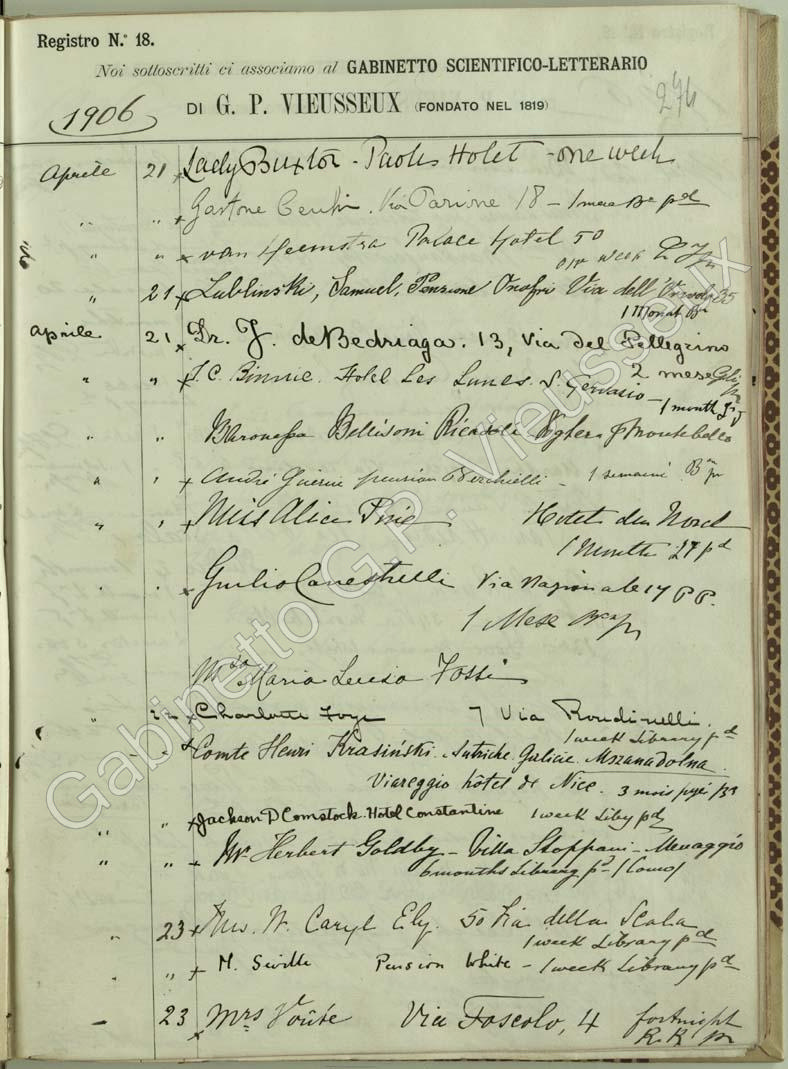 Registro N.º 18.
Noi sottoscritti ci associamo al GABINETTO SCIENTIFICO-LETTERARIO
1906 DI G. P. VIEUSSEUX (FONDATO NEL 1819) 274
Aprile 21 x Lady Buxton - Paolis Hotel - one week
" " x Gastone Via Parione 18 - 1 mese pd
" " x van Heemstra Palace Hotel 50
one week
" 21 x Lublinski, Samuel, Pensione Onofri Via dell'
1 Monat
Aprile 21 x Dr. J. de Bedriaga. 13, Via del Pellegrino
2 mese
" " x J. C. Binnie. Hotel Les Lunes. S. Gervasio -
1 month
" " Baronessa Bellisoni Ricasoli
" " x André Guerin pension Becchielli - 1 semaine
" " x Miss Alice Hotel du Nord
1 Month 27 pd
" x Giulio Canestrelli Via Nazionale 17 PP.
1 Mese
Maria Luisa Fossi
" 22 x Charlotte 7 Via Rondinelli.
1 week Library pd
" " x Comte Henri Krasiński. Autriche Galicie. Mszanadolna
Viareggio hôtel de Nice. 3 mois
" " x Jackson D Comstock Hotel Constantine 1 week Liby pd
" " x Mr Herbert Goldby - Villa Stoppani - Menaggio
6 months Library pd (Como)
" 23 x Mrs. W. Caryl Ely. 50 Via della Scala
1 week Library pd
" x M. Seville Pension White - 1 week Library pd
- 23 x Mrs Voûte Via Foscolo, 4 fortnight
R. R.
Gabinetto G.P. Vieusseux